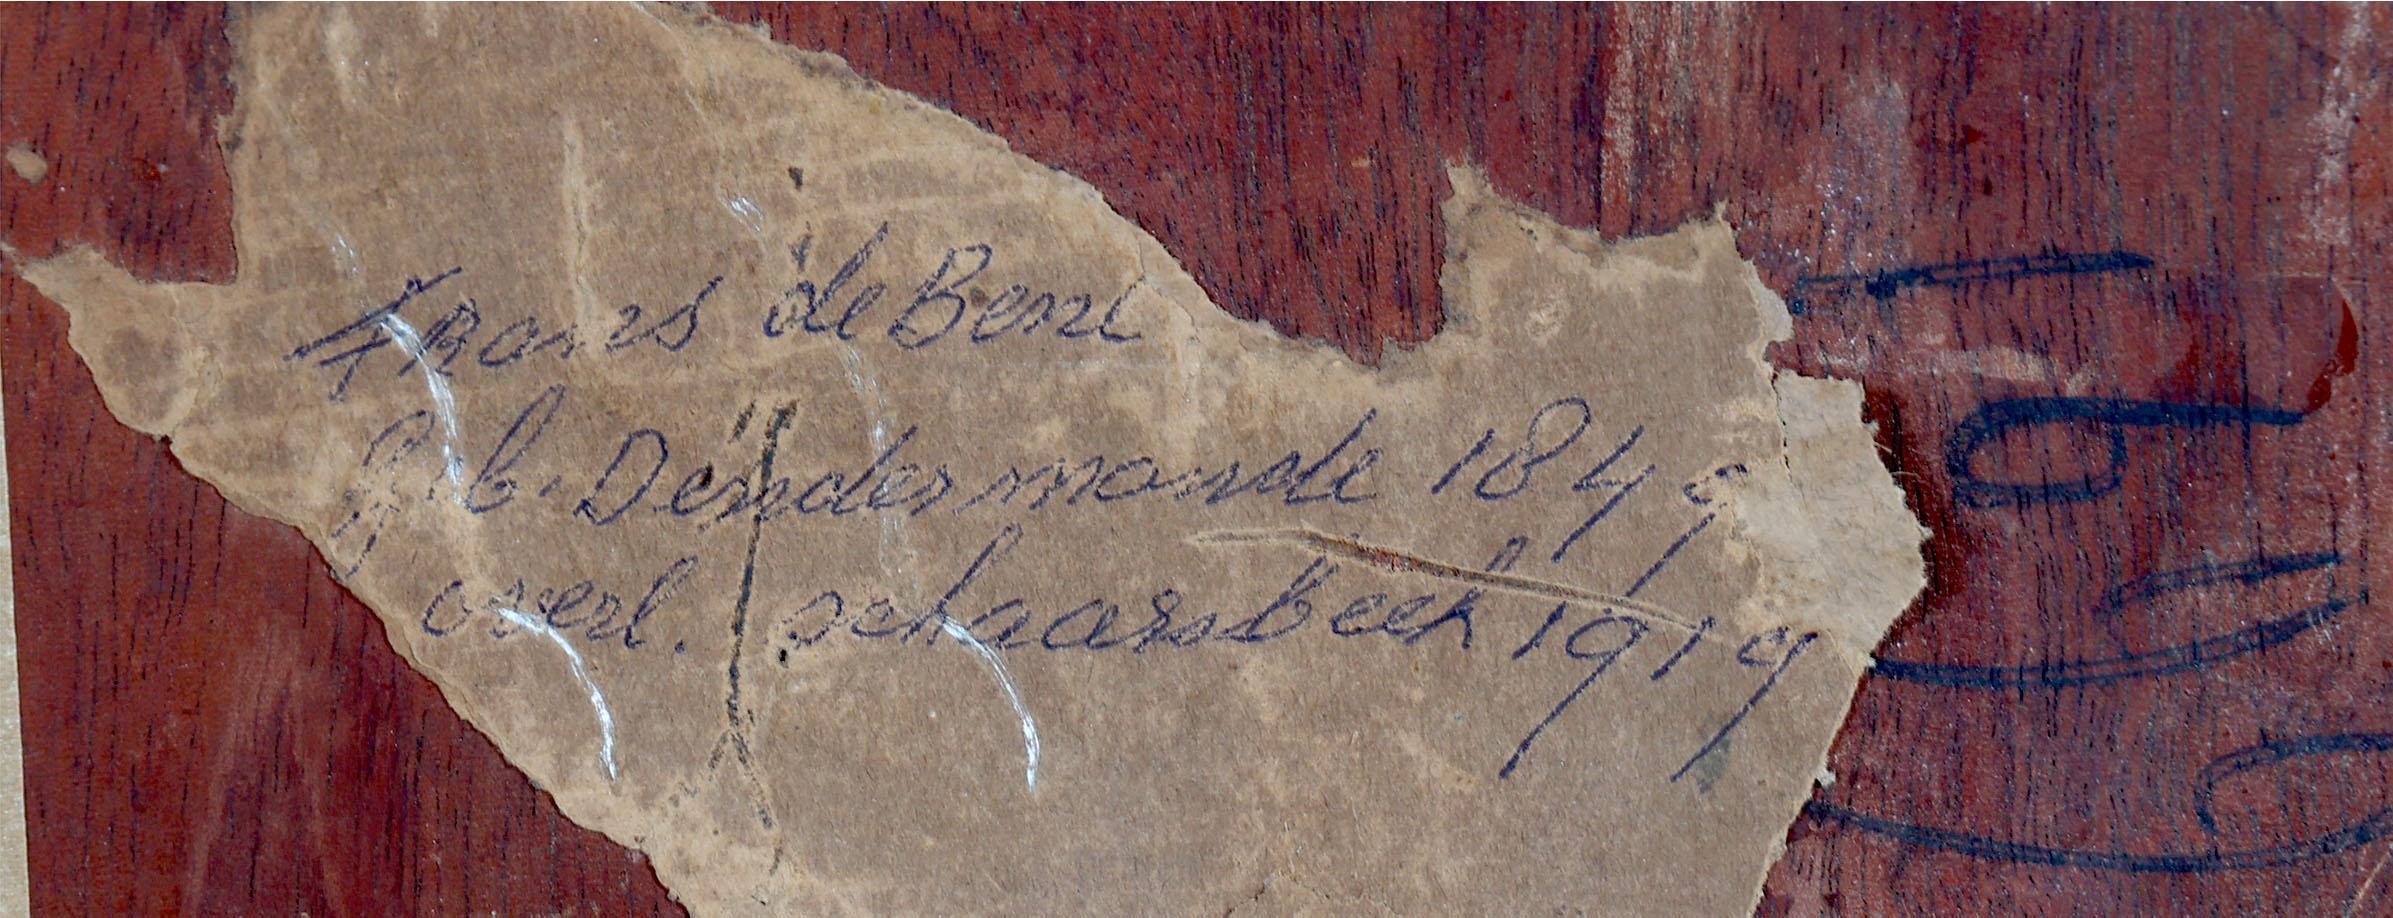 Frans de Beul
Geb. Dendermonde 1849
overl. schaarsbeek 1919